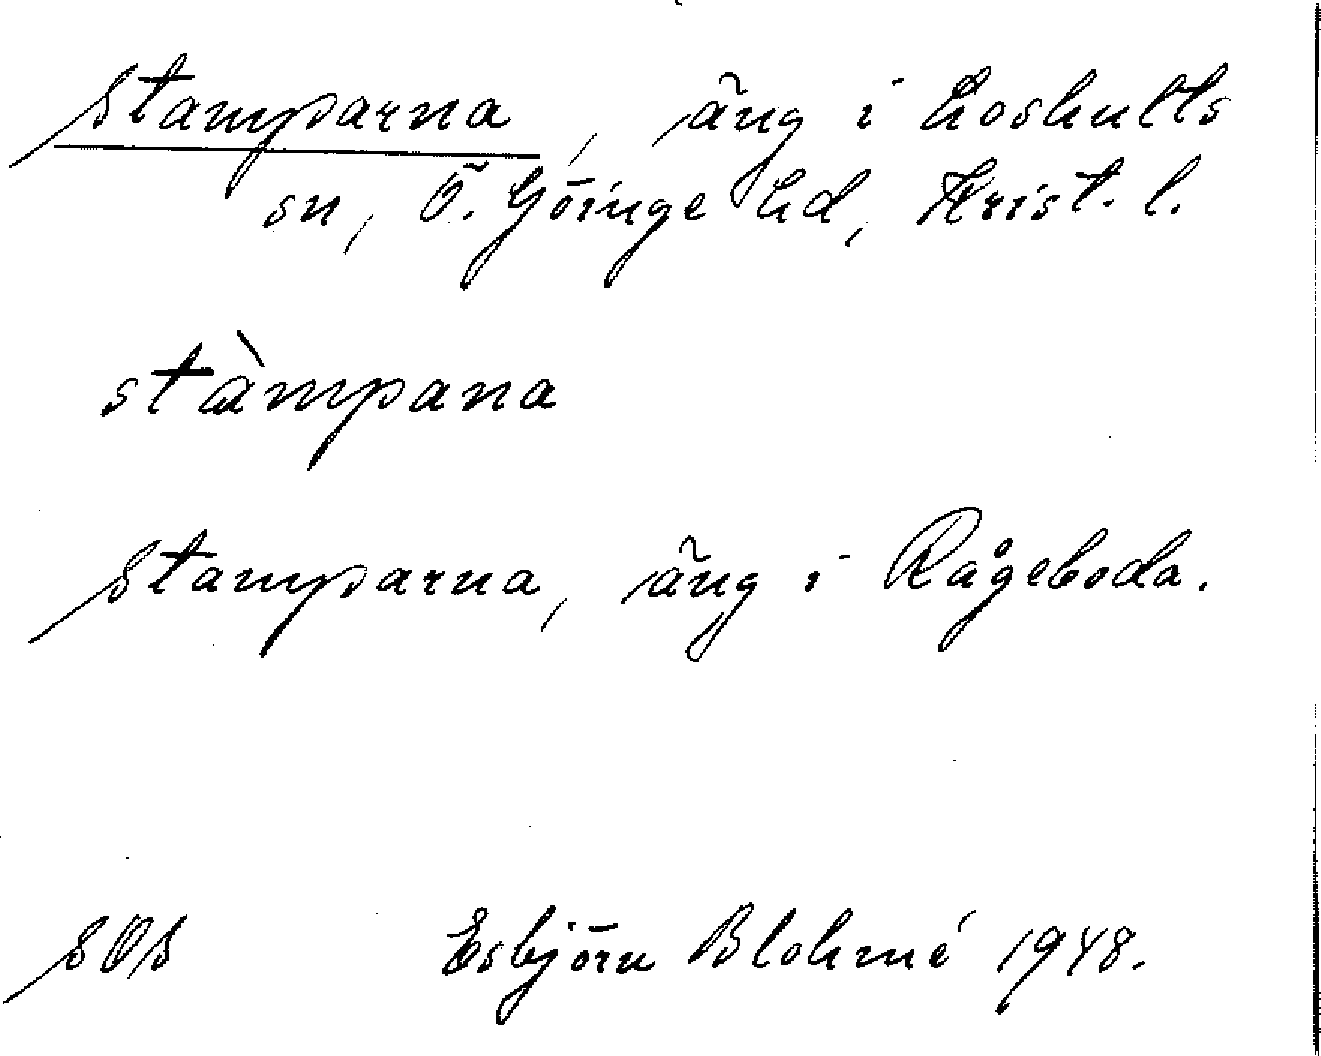 Stamparna, äng i Loshults
sn, Ö. Göinge hd, Krist. l.
stàmpana
Stamparna, äng i Rågeboda.
SOS Esbjörn Blohmé 1948.